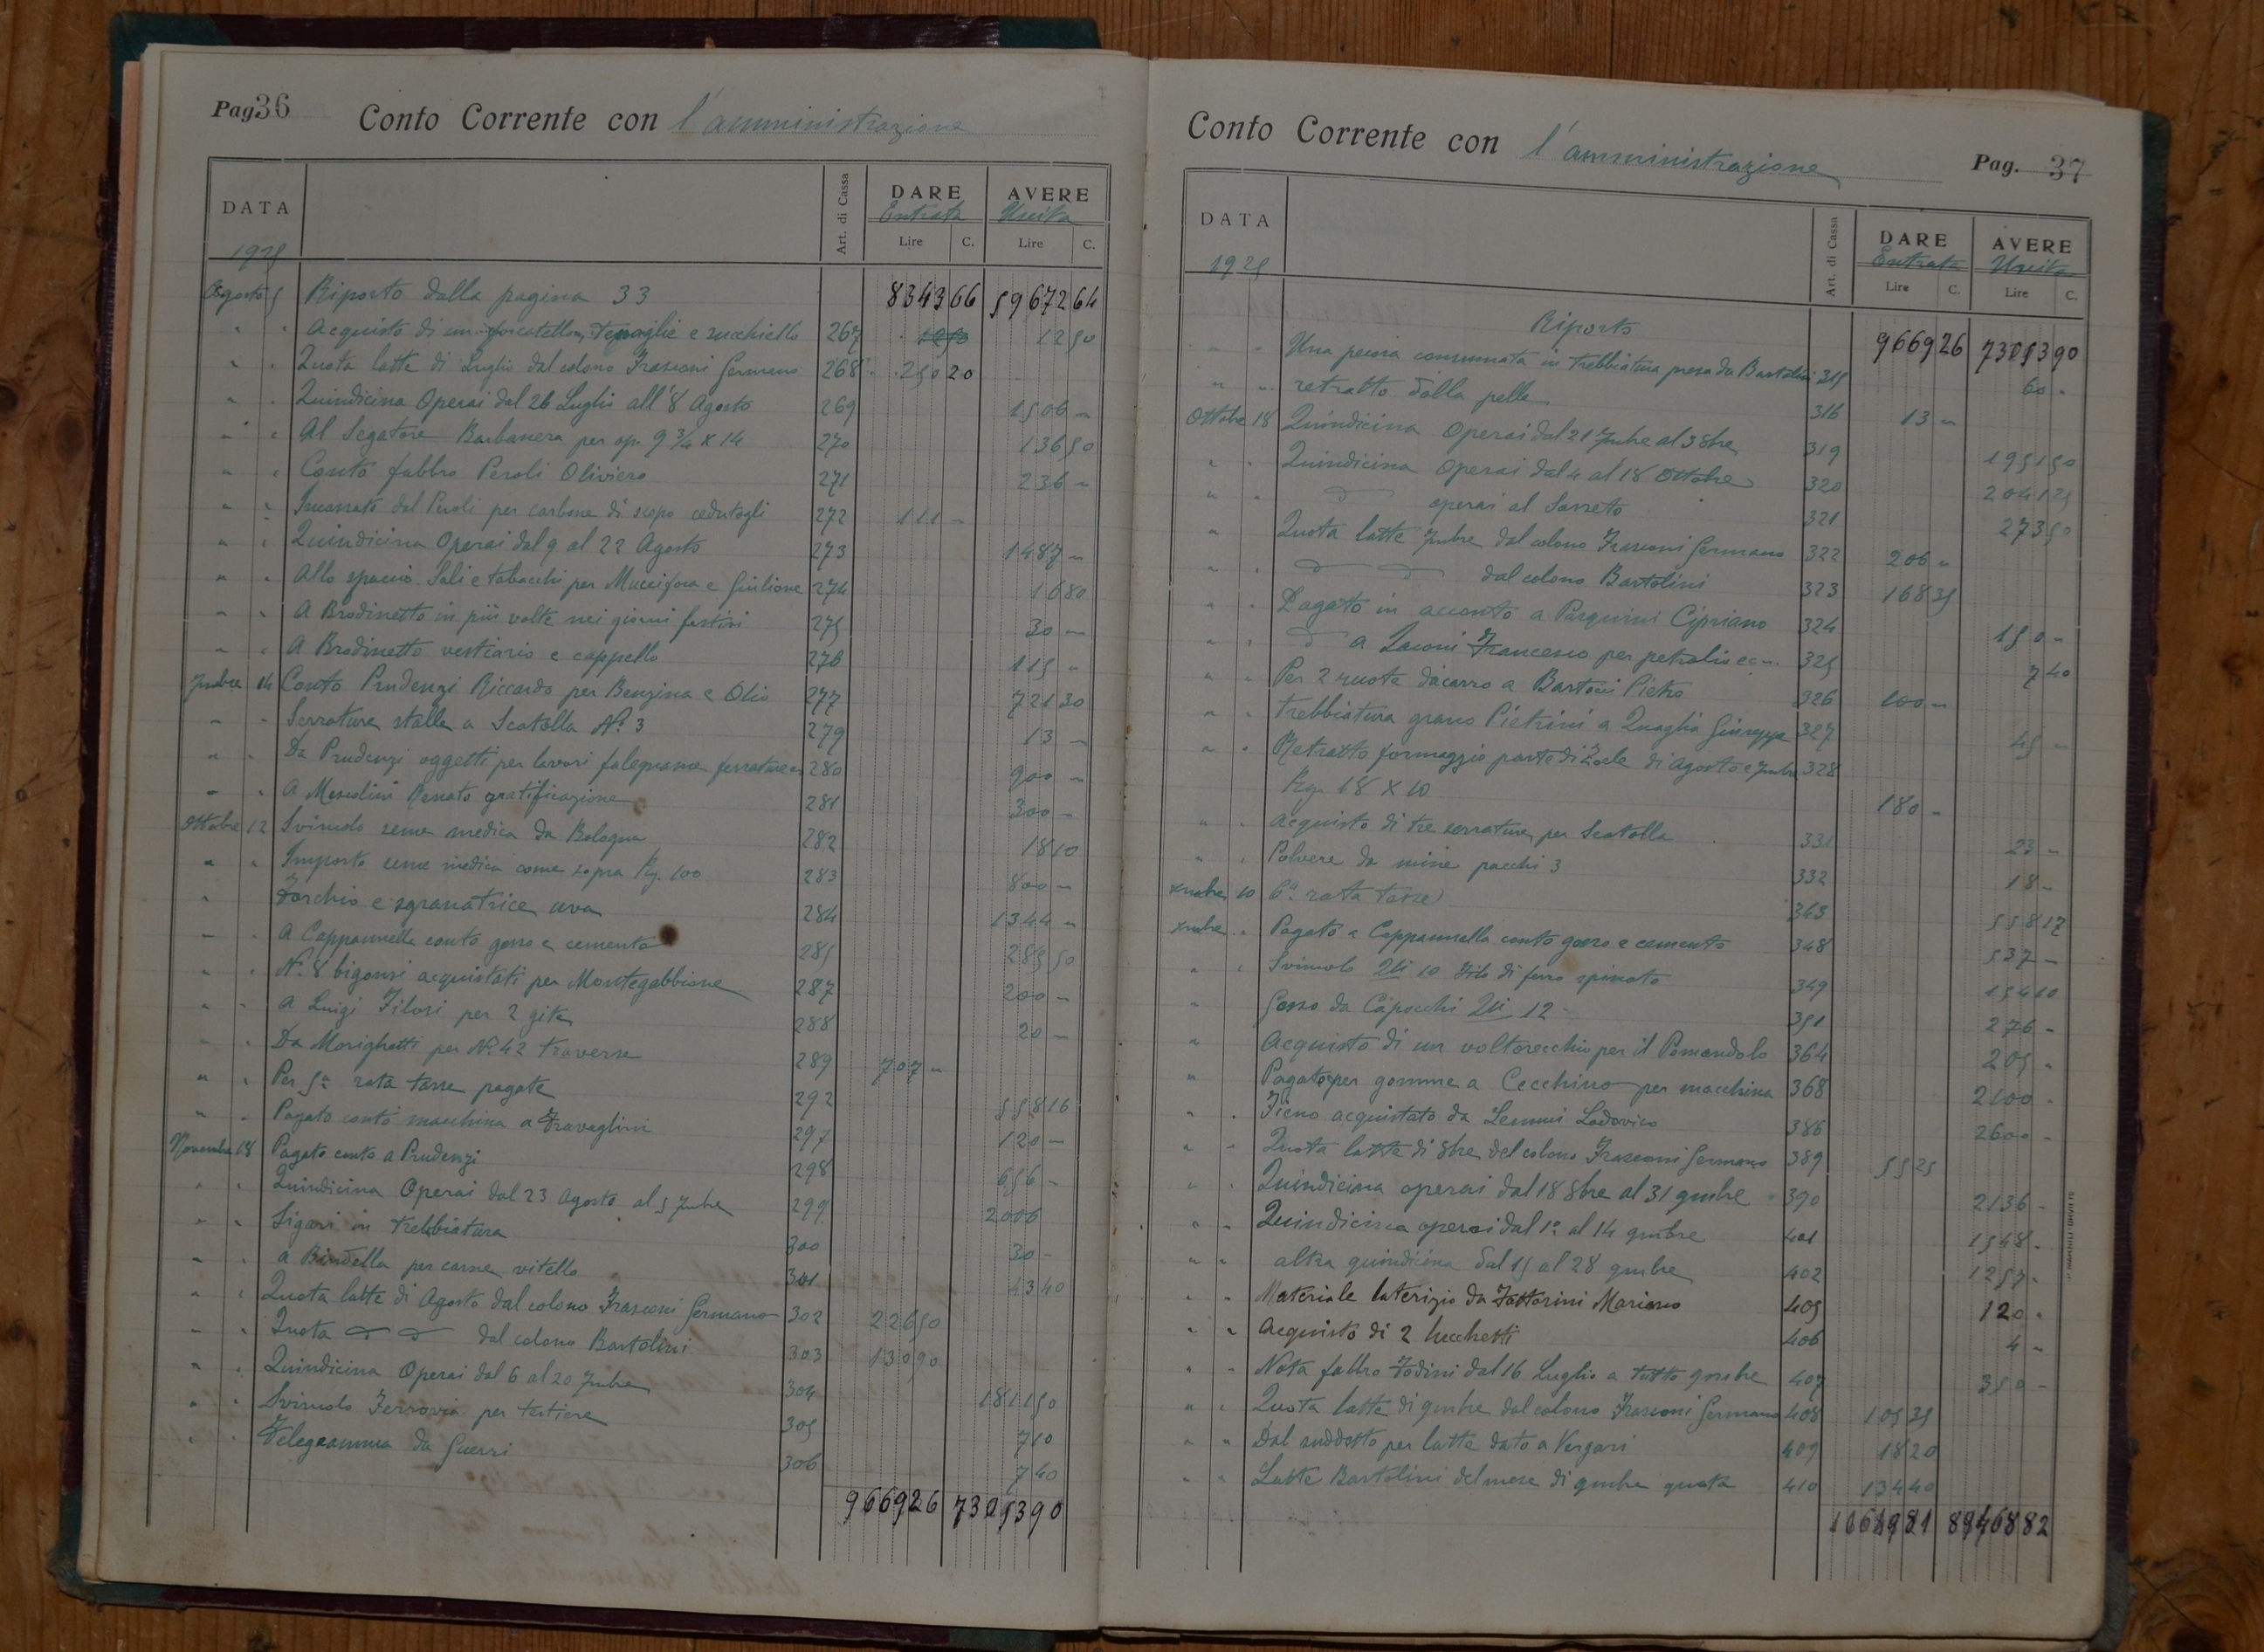 Pag. 36
Conto Corrente con l'amministrazione
DATA Art. di Cassa DARE AVERE
Entrata Uscita
Lire C. Lire C.
1925
Agosto 5 Riporto dalla pagina 33 8343 66 59672 64
" " Acquisto di un forcatello, tenaglie e succhiello 267 12 50 12 50
" " Quota latte di Luglio dal colono Frasconi Germano 268 250 20
" " Quindicina Operai dal 26 Luglio all'8 Agosto 269 1506 "
" " Al Segatore Barbanera per op. 9 3/4 x 14 270 136 50
" " Conto fabbro Peroli Oliviero 271 236 "
" " Incassato dal Peroli per carbone di scopo cedutogli 272 111 "
" " Quindicina Operai dal 9 al 22 Agosto 273 1487 "
" " Allo spaccio Sali e tabacchi per Muccifora e Giulione 274 16 80
" " A Brodinetto in più volte nei giorni festivi 275 30 "
" " A Brodinetto vestiario e cappello 276 115 "
7mbre 14 Conto Prudenzi Riccardo per Benzina e Olio 277 721 30
" " Serrature stalle a Scatolla N. 3 279 13 "
" " Da Prudenzi oggetti per lavori falegname ferrature 280 900 "
" " A Mescolini Renato gratificazione 281 300 "
Ottobre 12 Svincolo seme medica da Bologna 282 18 10
" " Importo seme medica come sopra Kg. 100 283 800 "
" Torchio e sgranatrice uva 284 1344 "
" " A Cappannella conto gesso e cemento 285 285 50
" " N. 8 bigonsi acquistati per Montegabbione 287 200 "
" " A Luigi Filosi per 2 gite 288 20 "
" " Da Morighetti per N. 42 traverse 289 707 "
" " Per 5a rata tasse pagate 292 558 16
" " Pagato conto macchina a Travaglini 297 120 "
Novembre 18 Pagato conto a Prudenzi 298 656 "
" " Quindicina Operai dal 23 Agosto al 5 7mbre 299 2006
" " Sigari in trebbiatura 300 30 "
" " a Bindella per carne vitello 301 43 40
" " Quota latte di Agosto dal colono Frasconi Germano 302 226 50
" " Quota dal colono Bartolini 303 130 90
" " Quindicina Operai dal 6 al 20 7mbre 304 1811 50
" " Svincolo Ferrovia per testiere 305 7 10
" " Telegramma da Guerri 306 7 40
9669 26 73053 90
Conto Corrente con l'amministrazione
Pag. 37
DATA Art. di Cassa DARE AVERE
Entrata Uscita
Lire C. Lire C.
1925
Riporto 9669 26 73053 90
" " Una pecora consumata in trebbiatura presa da Bartolini 315 60 "
" " retratto dalla pelle 316 13 "
Ottobre 18 Quindicina Operai dal 21 7mbre al 3 8bre 319 1951 50
" " Quindicina Operai dal 4 al 18 Ottobre 320 2041 25
" " operai al Sasseto 321 273 50
" Quota latte 7mbre dal colono Frasconi Germano 322 206 "
" " dal colono Bartolini 323 168 35
" " Pagato in acconto a Pasquini Cipriano 324 150 "
" " a Laconi Francesco per petrolio ecc. 325 7 40
" " Per 2 ruote da carro a Bartoni Pietro 326 100 "
" " trebbiatura grano Pietrini a Quaglia Giuseppe 327 45 "
" " Retratto formaggio parte di Zoele di Agosto e 7mbre 328
Kg. 18 x 10 180 "
" " Acquisto di tre serrature per Scatolla 331 23 "
" " Polvere da mine pacchi 3 332 18 "
xmbre 10 6a rata tasse 343 558 17
xmbre " Pagato a Cappannella conto gesso e cemento 348 537 "
" " Svincolo Qli 10 Filo di ferro spinato 349 154 10
" Gesso da Capocchi Qli 12 351 276 "
" Acquisto di un voltorecchio per il Pomandolo 364 205 "
" Pagato per gomme a Cecchino per macchina 368 2100 "
" " Fieno acquistato da Lemmi Lodovico 386 2600 "
" " Quota latte di 8bre del colono Frasconi Germano 389 55 25
" " Quindicina operai dal 18 8bre al 31 gmbre 390 2136 "
" " Quindicina operai dal 1° al 14 gmbre 401 1548 "
" " altra quindicina dal 15 al 28 gmbre 402 1257 "
" " Materiale laterizio da Fattorini Mariano 405 120 "
" " Acquisto di 2 lucchetti 406 4 "
" " Nota fabbro Todini dal 16 Luglio a tutto gmbre 407 350 "
" " Quota latte di gmbre dal colono Frasconi Germano 408 105 35
" " Dal suddetto per latte dato a Vergari 409 18 20
" " Latte Bartolini del mese di gmbre quota 410 134 40
89468 82